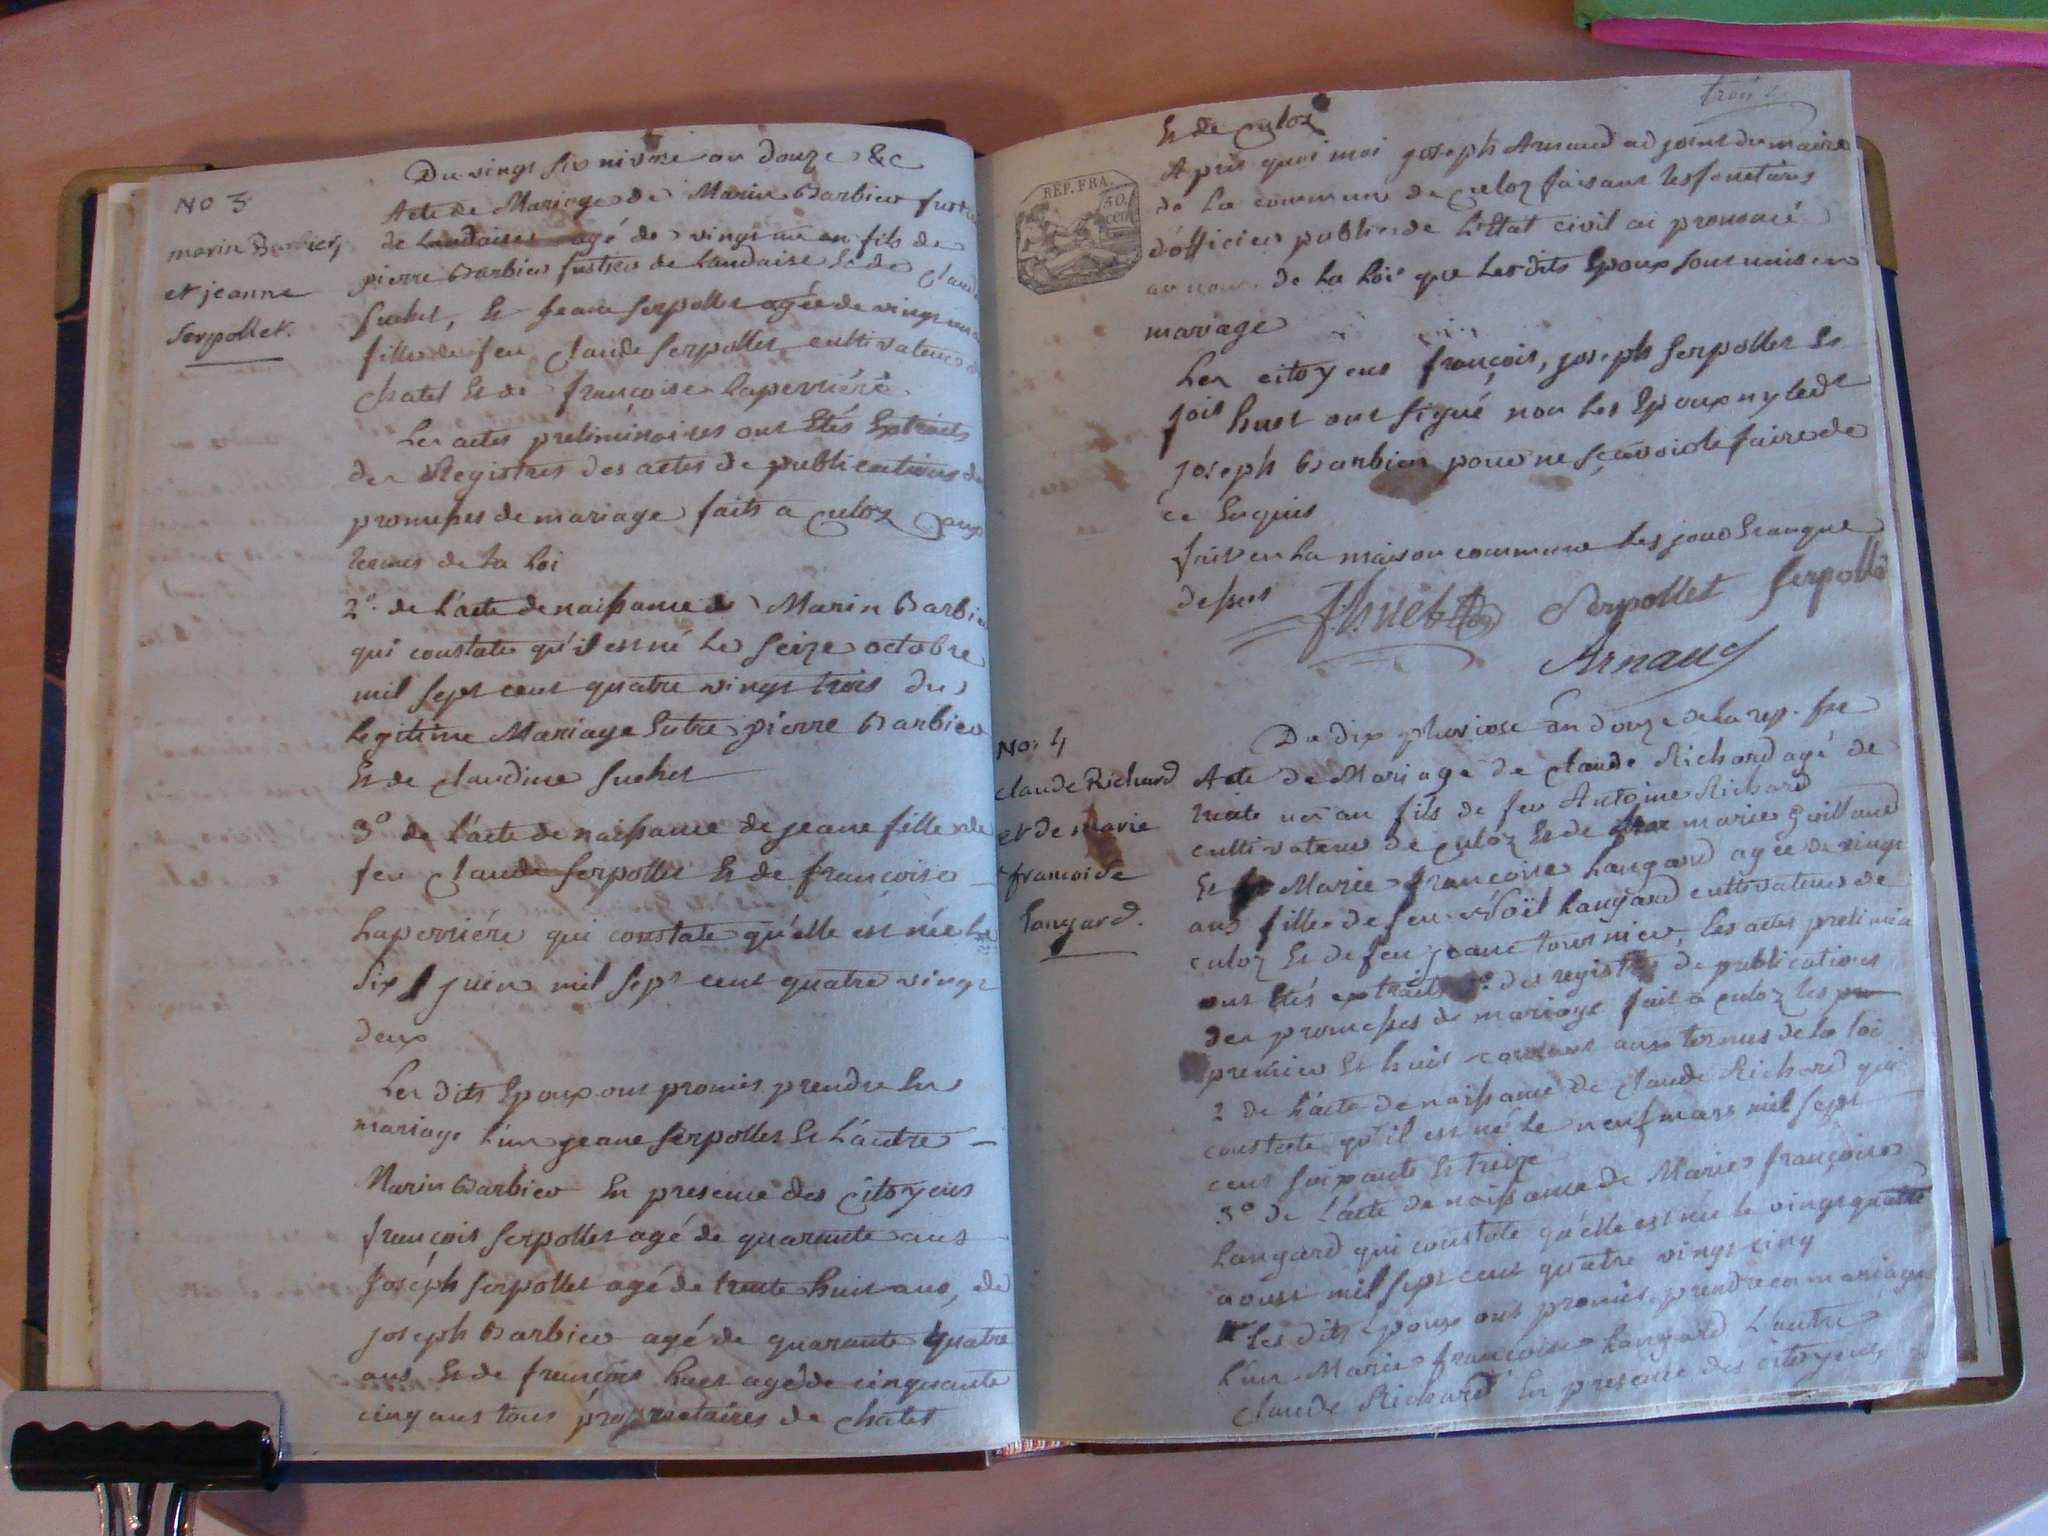 No 3
marin Barbier
et jeanne
Serpollet.
Du vingt six nivose an douze &c
Acte de Mariage de Marin Barbier fustier
de Landaises agé de vingt un an fils de
pierre Barbier fustier de Landaise Et de
Suchet, Et Jeane Serpollet agée de vingt un
fille de feu Claude Serpollet cultivateur
chatel Et de françoise Laperriére
Les actes preliminaires ont Etés Extraits
des Registres des actes de publications de
promesses de mariage faits a culoz aux
termes de la Loi
2º. de L'acte de naissance de Marin Barbier
qui constate qu'il est né Le Seize octobre
mil Sept cent quatre vingt trois du
Legitime Mariage Entre pierre Barbier
Et de claudine Suchet
3º de L'acte de naissance de jeane fille de
feu Claude Serpollet Et de françoise
Laperriére qui constate qu'elle est née Le
Six juin mil Sept cent quatre vingt
deux
Les dits Epoux ont promis prendre En
mariage L'un jeane Serpollet Et L'autre
Marin Barbier En presence des Citoyens
françois Serpollet agé de quarante ans
Joséph Serpollet agé de trente huit ans, de
joseph Barbier agé de quarante quatre
ans Et de françois huet agé de cinquante
cinq ans tous propriétaires de chatel
trois
Et de Culoz
REP. FRA.
50
cen
Apres quoi moi joseph Arnaud adjoint du maire
de La commune de Culoz faisant les fonctions
d'officier public de L'Etat civil ai prononcé
au nom de la Loi que Lesdits Epoux sont unis en
mariage
Les citoyens françois, joseph Serpollet Et
fois huet ont signé non Les Epoux ny ledt
joseph Barbier pour ne sçavoir le faire de
ce Enquis
fait en La maison commune Les jour Et an que
dessus
Serpollet Serpollet
Arnaud
No: 4
Claude Richard
et de marie
francoise
Langard.
Du dix pluviose an douze de la rep. fse
Acte de Mariage de Claude Richard agé de
trente un an fils de feu Antoine Richard
cultivateur de Culoz Et de marie Guilland
Et Marie françoise Langard agée de vingt
ans fille de feu Noël Langard cultivateur de
culoz Et de feu jeane tournier, Les actes prelimin
ont Etés extraits 1º. des registres de publications
des promesses de mariage fait a culoz les
premier Et huit courant aux termes de la loi
2 de L'acte de naissance de Claude Richard qui
constate qu'il est né Le neuf mars mil Sept
cent Soixante Et treize
3º de L'acte de naissance de Marie françoise
Langard qui constate qu'elle est née le vingt quatre
aoust mil Sept cent quatre vingt cinq
Les dits Epoux ont promis prendre en mariage
L'un Marie françoise Langard L'autre
Claude Richard En presence des citoyens